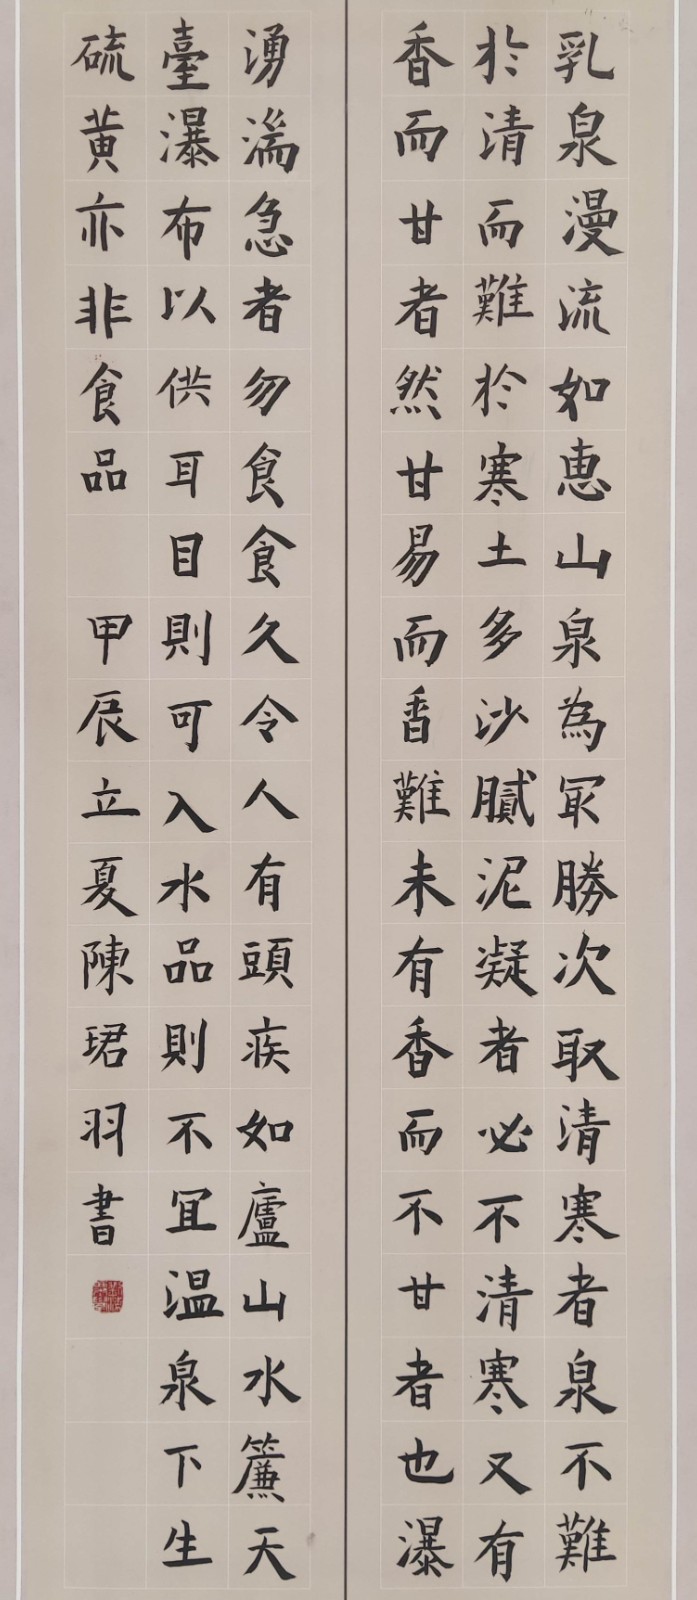 乳泉漫流如恵山泉為冣勝次取清寒者泉不難
於清而難於寒土多沙膩泥凝者必不清寒又有
香而甘者然甘易而香難未有香而不甘者也瀑
湧湍急者勿食食久令人有頭疾如廬山水簾天
臺瀑布以供耳目則可入水品則不宜温泉下生
硫黄亦非食品 甲辰立夏陳珺羽書